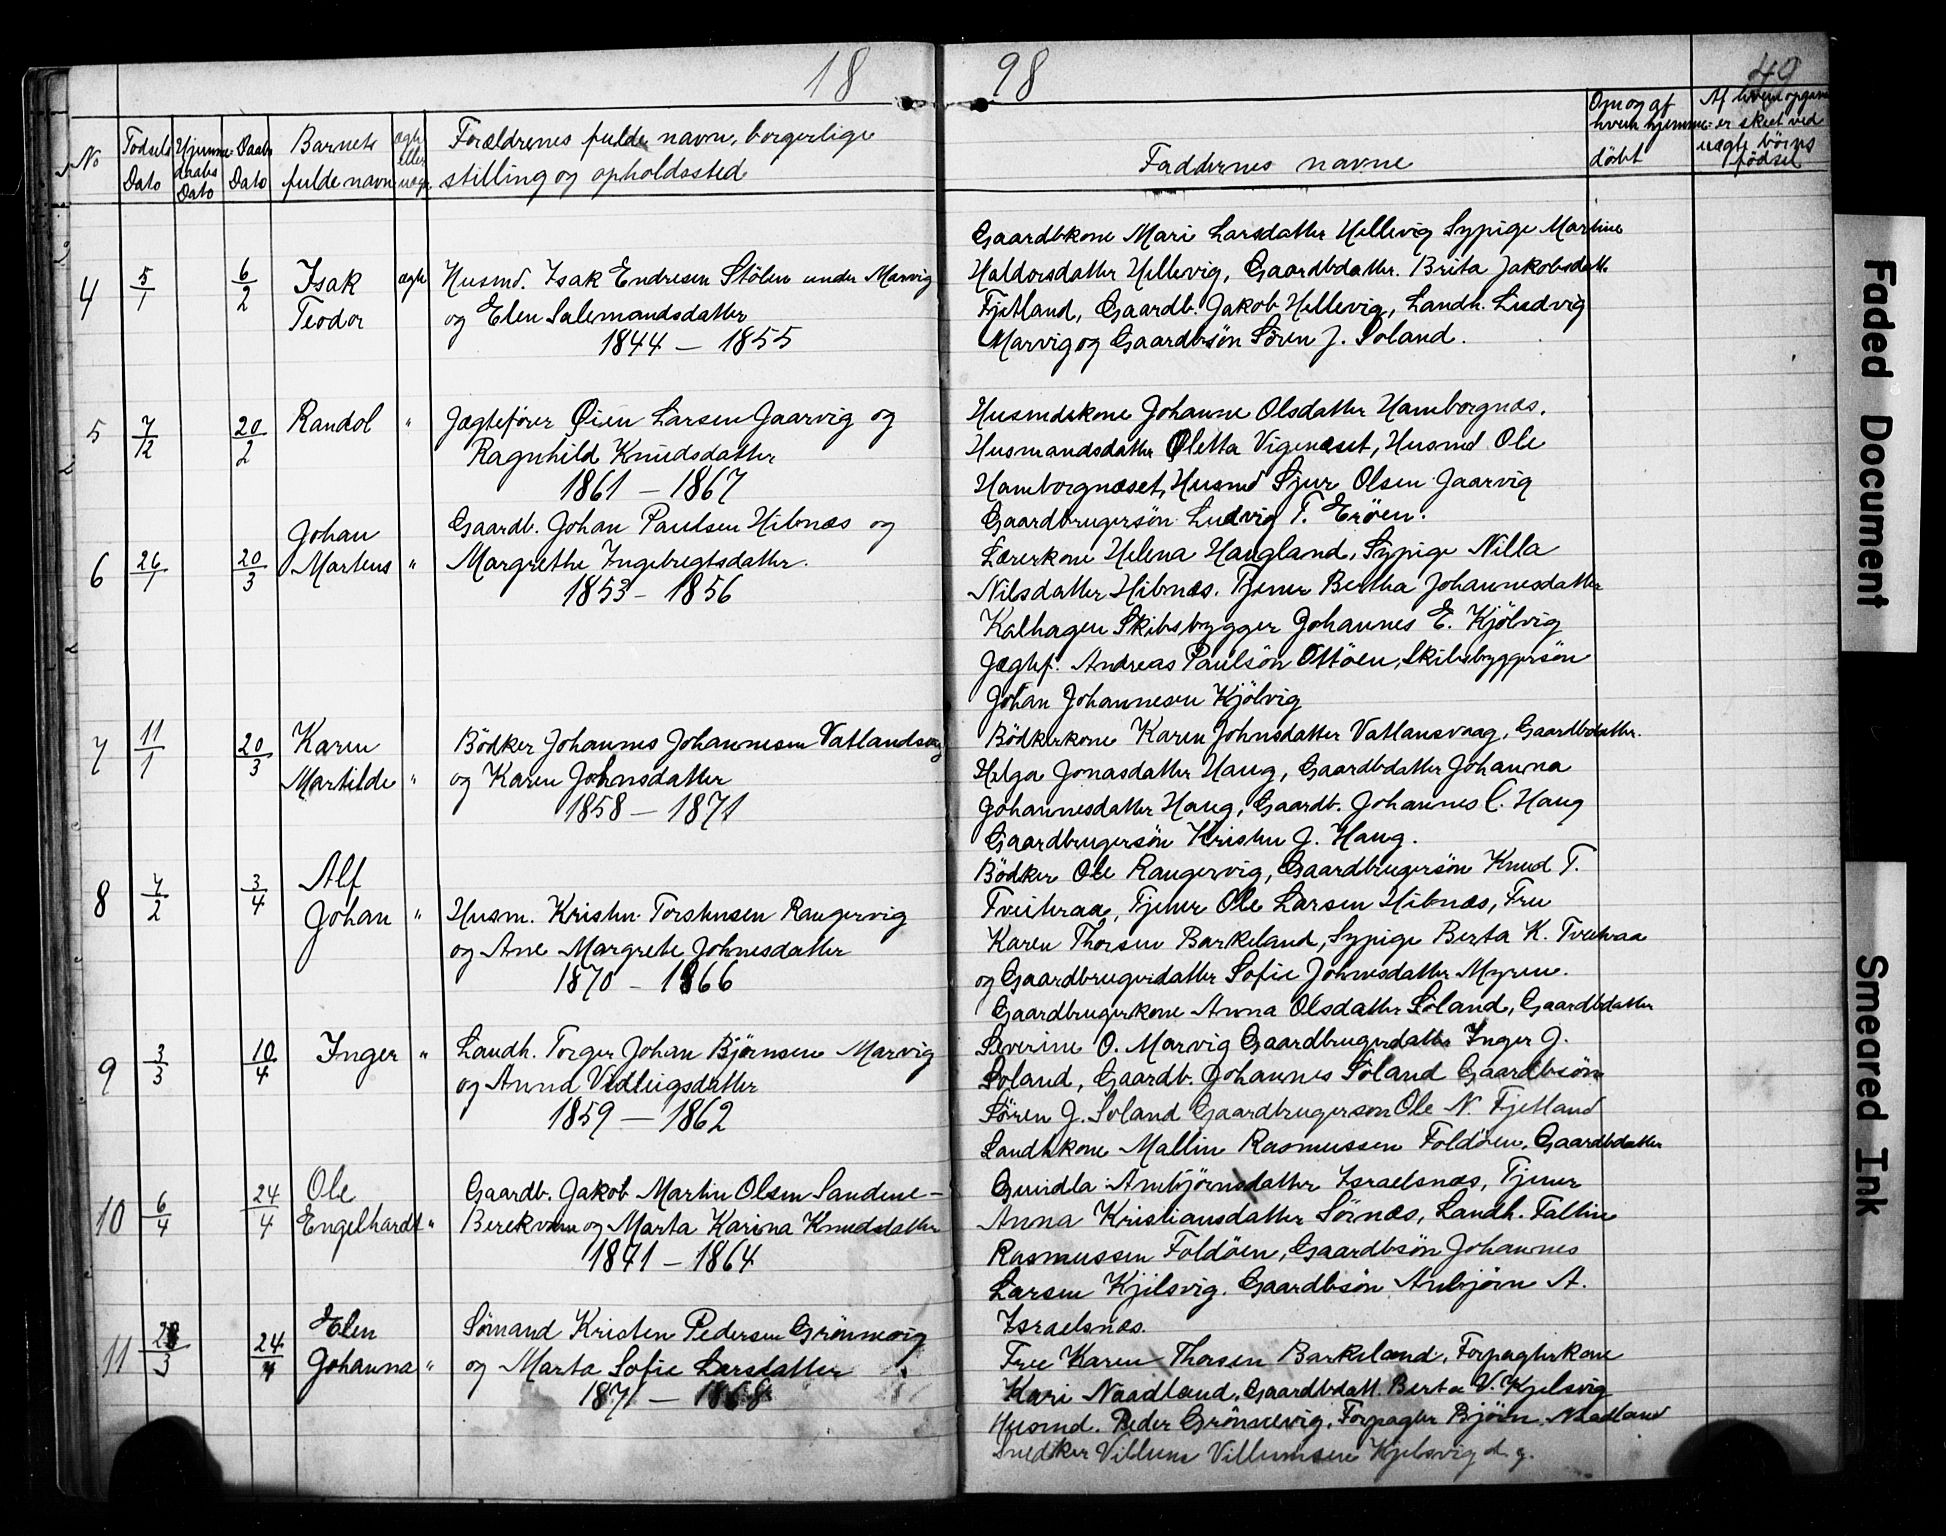 18
98
49
No
Fødsels Dato
Hjemme daabs Dato
Daabs Dato
Barnets fulde navn
ægte eller uægte
Forældrenes fulde navn, borgerlige
stilling og opholdssted
Faddernes navne
Om og af hvem hjemme- døbt
Af hvem opgave er skeet ved uægte børns fødsel
4 5/1 6/2 Isak Teodor ægte
Husmd. Isak Endresen Stölen under Marvig
og Elen Salemandsdatter
1844 – 1855
Gaardbkone Mari Larsdatter Hellevig Sypige Martine
Haldorsdatter Hellevig, Gaardbdatter. Brita Jakobsdatt.
Fjetland, Gaardb. Jakob Hellevig, Landh. Ludvig
Marvig og Gaardbsön Sören J. Soland.
5 7/12 20/2 Randol "
Jægtefører Øien Larsen Jaarvig og
Ragnhild Knudsdatter
1861 – 1867
Husmdskone Johanne Olsdatter Hamborgnæs.
Husmandsdatter Oletta Vigenæset, Husmd Ole
Hamborgnæset, Husmd Sjur Olsen Jaarvig
Gaardbrugersön Ludvig T. Eröen.
6 26/1 20/3 Johan Martens "
Gaardb. Johan Paulsen Hibnæs og
Margrethe Ingebregtsdatter.
1853 – 1856
Lærerkone Helena Haugland, Sypige Nilla
Nilsdatter Hibnæs. Tjener Bertha Johannesdatter
Kalhagen Skibsbygger Johannes E. Kjölvig
Jægtef. Andreas Paulsön Ottöen, Skibsbyggersön
Johan Johannesen Kjölvig
7 11/1 20/3 Karen Martilde "
Bödker Johannes Johannesen Vatlandsvag
og Karen Johnsdatter
1858 – 1871
Bödkerkone Karen Johnsdatter Vatlansvaag, Gaardbdatter.
Helga Jonasdatter Haug, Gaardbdatter Johanna
Johannesdatter Haug, Gaardb. Johannes C. Haug
Gaardbrugersön Kristen J. Haug.
8 7/2 3/4 Alf Johan "
Husm. Kristen Torstensen Raugervig
og Ane Margrete Johnesdatter
1870 – 1866
Bödker Ole Raugervig, Gaardbrugersön Knud T.
Tveiteraa, Tjener Ole Larsen Hibnæs, Fru
Karen Thorsen Barkeland, Sypige Berta K. Tveiteraa
og Gaardbrugerdatter Sofie Johnesdatter Myren.
9 3/3 10/4 Inger "
Landh. Torger Johan Bjørnsen Marvig
og Anna Vedleigsdatter
1859 – 1862
Gaardbrugerkone Anna Olsdatter Söland, Gaardbdatter
Severine O. Marvig Gaardbrugerdatter Inger J.
Soland, Gaardb. Johannes Söland Gaardbsön
Sören J. Soland Gaardbrugerson Ole N. Fjetland
10 6/4 24/4 Ole Engelhardt "
Gaardb. Jakob Martin Olsen Sandene-
Berekvam og Marta Karina Knudsdatter
1871 – 1864
Landhkone Mallin Rasmussen Foldöen, Gaardbdatter
Gundla Anbjörnsdatter Israelsnæs, Tjener
Anna Kristiansdatter Sörnæs, Landh. Fallin
Rasmussen Foldöen, Gaardbsön Johannes
Larsen Kjilsvig. Gaardbsön Anbjörn A.
Israelsnæs.
11 28/3 24/4 Elen Johanna "
Sömand Kristen Pedersen Grönnevig
og Marta Sofie Larsdatter
1871 – 1868
Frue Karen Thorsen Barkeland, Forpagterkone
Kari Naadland, Gaardbdatt. Berta V. Kjelsvig
Husmd. Peder Grönnevig, Forpagter Björn Naadland
Snedker Villum Villumsen Kjelsvig d. y.
Faded Document
Smeared Ink